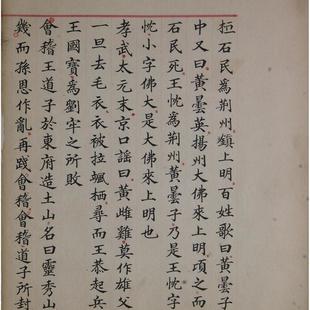 桓石民為荊州鎮上明百姓歌曰黃曇子
中又曰黃曇英揚州大佛來上明頃之而
石民死王忱為荊州黃曇子乃是王忱字
忱小字佛大是大佛來上明也
孝武太元末京口謠曰黃雌雞莫作雄父
一旦去毛衣衣被拉颯栖尋而王恭起兵
王國寶為劉牢之所敗
會稽王道子於東府造土山名曰靈秀山
幾而孫恩作亂再踐會稽會稽道子所封